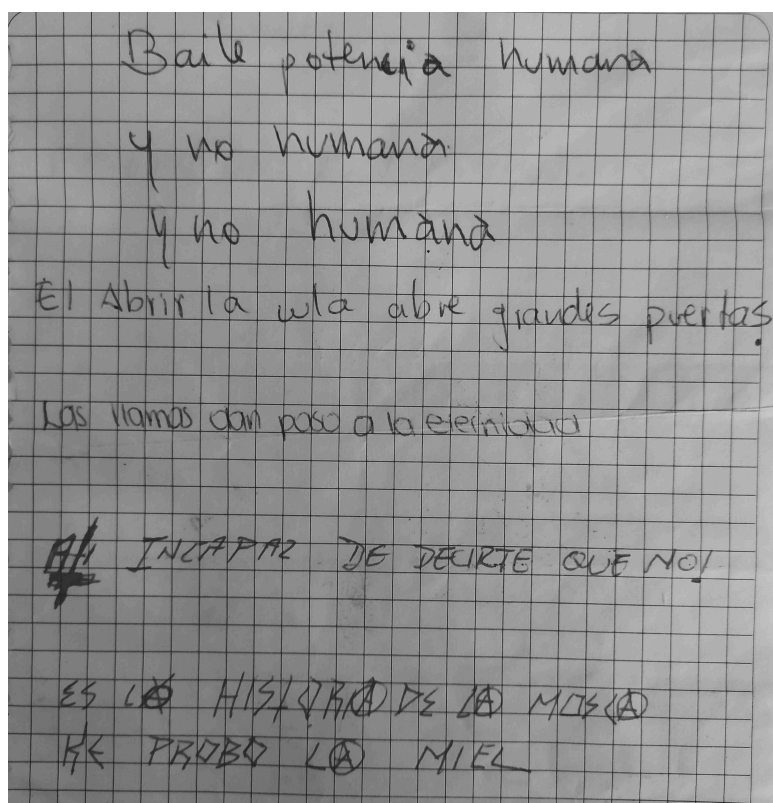 Baile potencia humana
y no humana
y no humana
El Abrir la cola abre grandes puertas.
Las llamas dan paso a la eternidad
INCAPAZ DE DECIRTE QUE NO!
ES LA HISTORIA DE LA MOSCA
KE PROBO LA MIEL